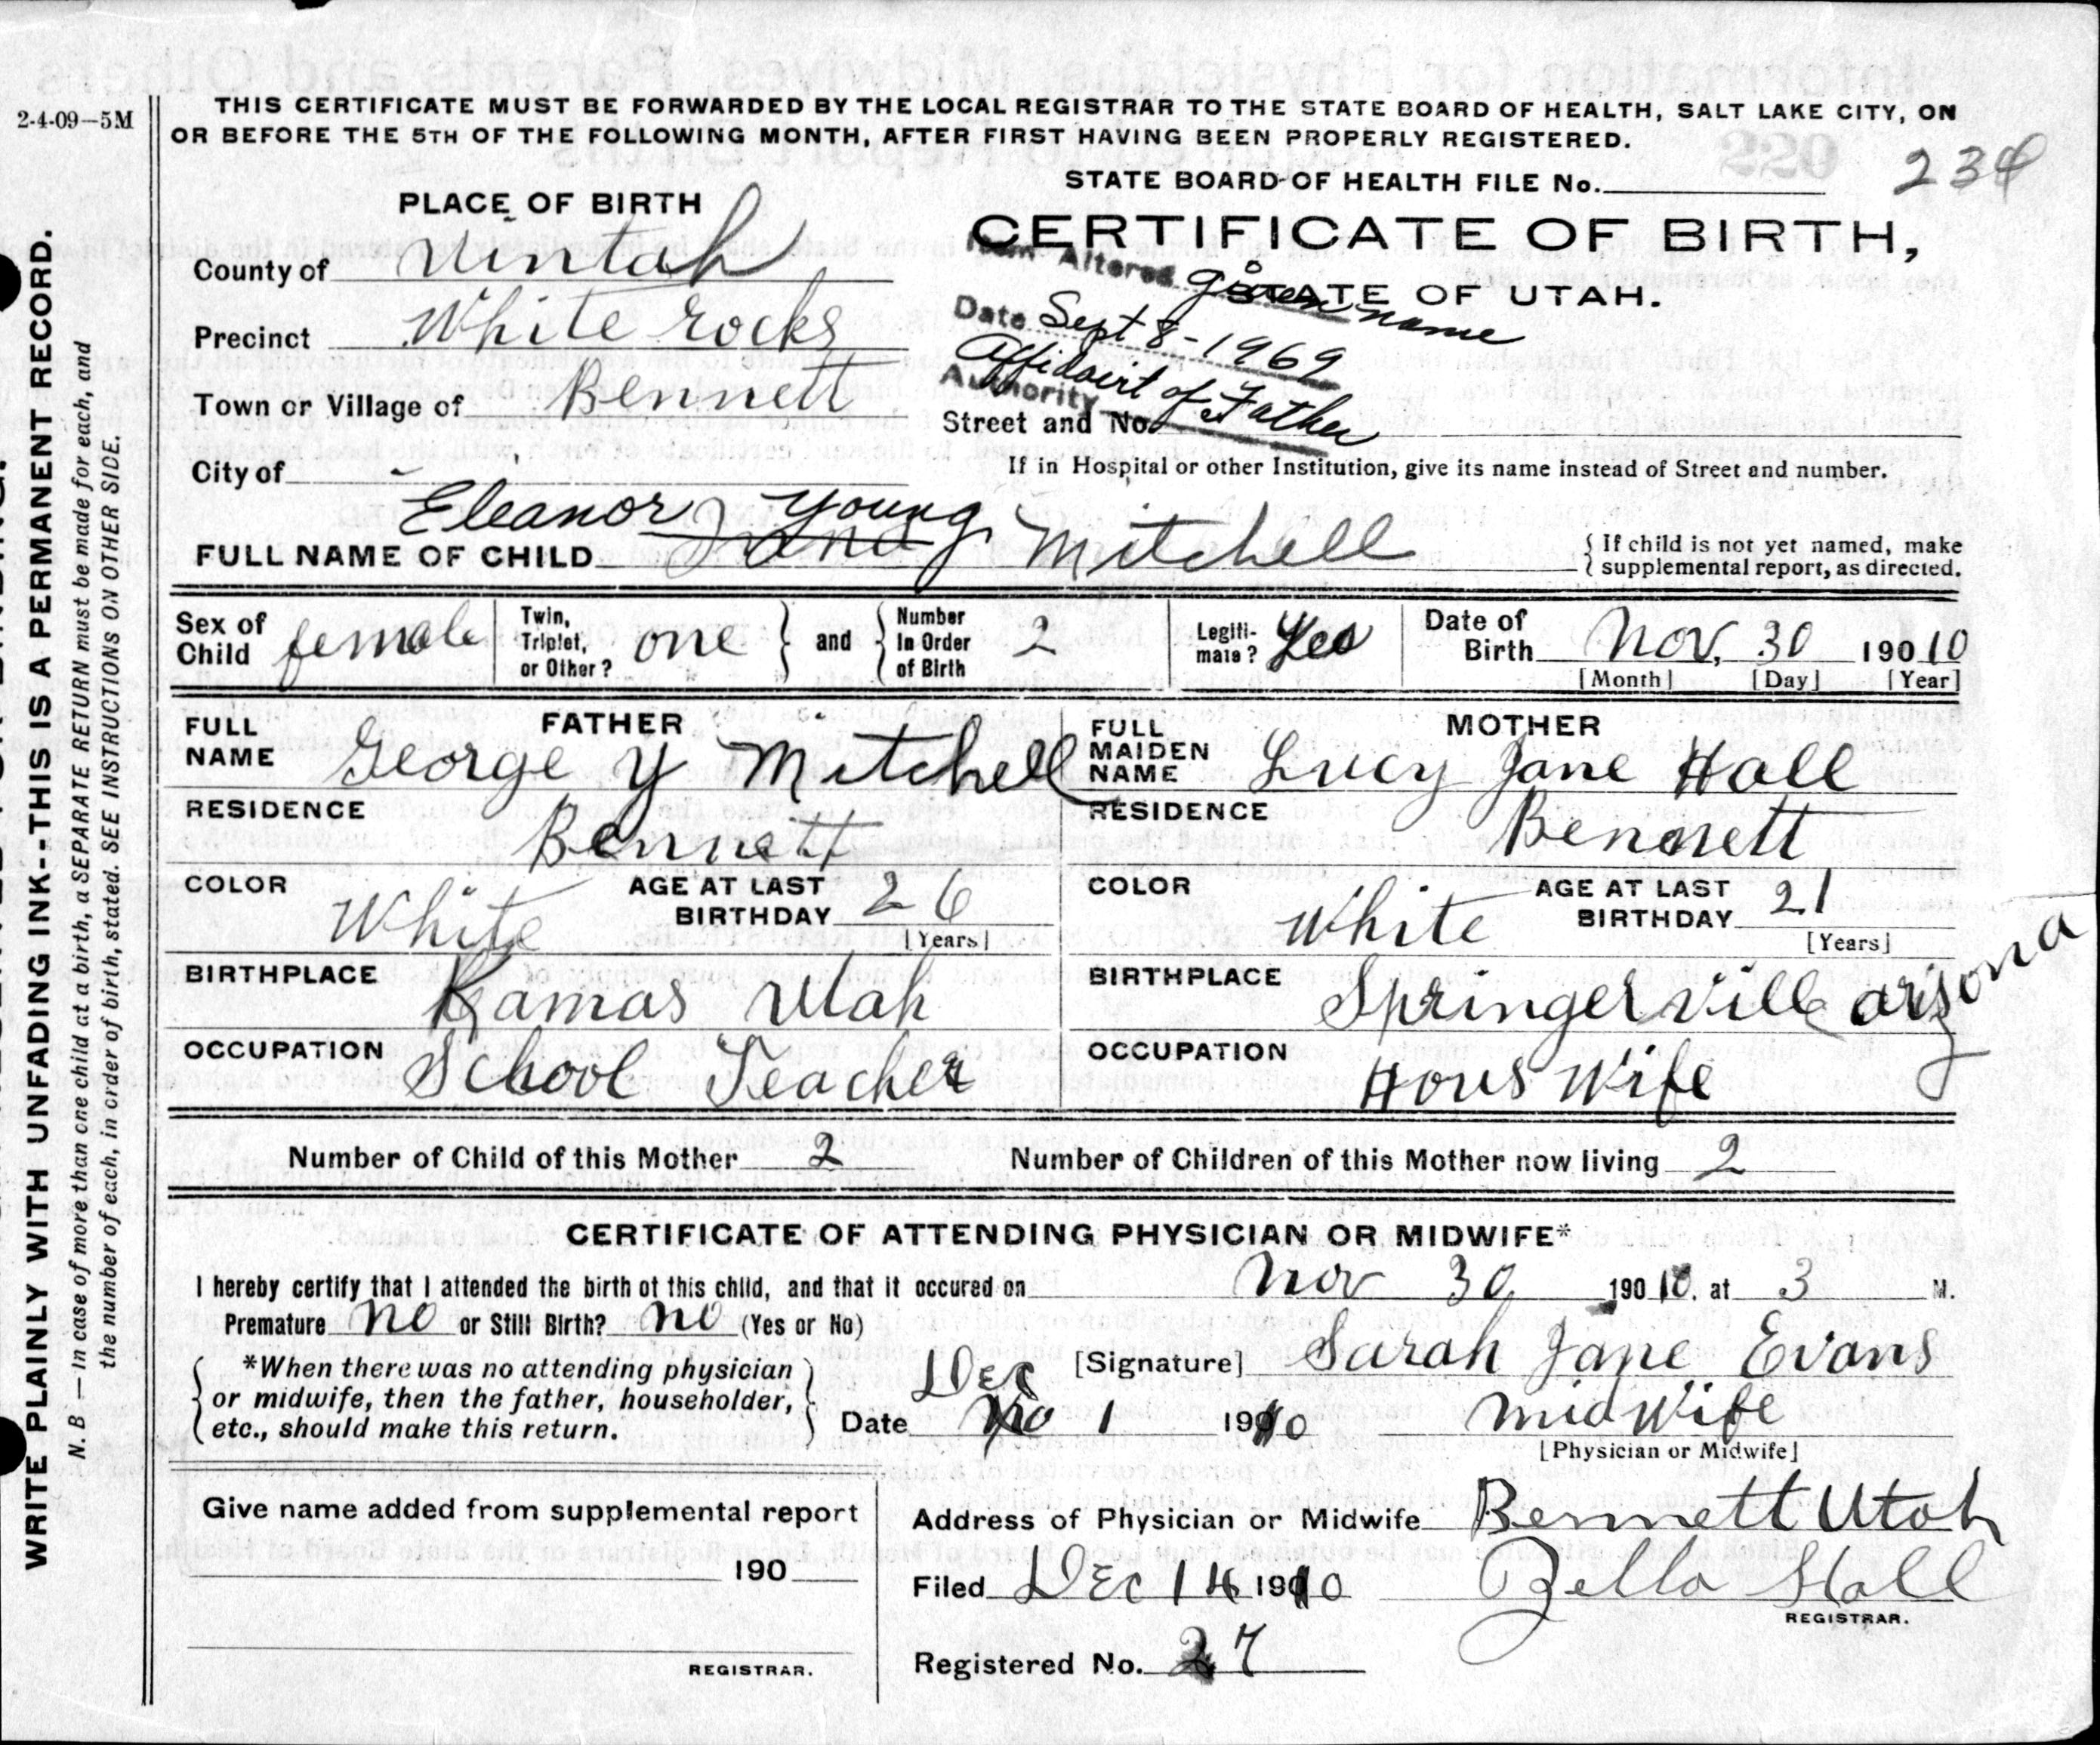 2-4-09—5M
THIS CERTIFICATE MUST BE FORWARDED BY THE LOCAL REGISTRAR TO THE STATE BOARD OF HEALTH, SALT LAKE CITY, ON
OR BEFORE THE 5TH OF THE FOLLOWING MONTH, AFTER FIRST HAVING BEEN PROPERLY REGISTERED.
STATE BOARD OF HEALTH FILE No. 234
220
WRITE PLAINLY WITH UNFADING INK--THIS IS A PERMANENT RECORD.
N. B.—In case of more than one child at a birth, a SEPARATE RETURN must be made for each, and
the number of each, in order of birth, stated. SEE INSTRUCTIONS ON OTHER SIDE.
PLACE OF BIRTH
CERTIFICATE OF BIRTH,
STATE OF UTAH.
County of Uintah
Precinct White rocks
Town or Village of Bennett
City of -
Item Altered given name
Date Sept 8-1969
Affidavit of Father
Authority
Street and No.
If in Hospital or other Institution, give its name instead of Street and number.
Eleanor Young
FULL NAME OF CHILD Mitchell
{ If child is not yet named, make
supplemental report, as directed.
Sex of Child female
Twin, Triplet, or Other? one } and { Number In Order of Birth 2
Legiti-mate? Yes
Date of Birth Nov, 30 190 10
[Month] [Day] [Year]
FATHER
FULL NAME George Y Mitchell
RESIDENCE Bennett
COLOR White AGE AT LAST BIRTHDAY 26
[Years]
BIRTHPLACE Kamas Utah
OCCUPATION School Teacher
MOTHER
FULL MAIDEN NAME Lucy Jane Hall
RESIDENCE Bennett
COLOR White AGE AT LAST BIRTHDAY 21
[Years]
BIRTHPLACE Springerville arizona
OCCUPATION Hous Wife
Number of Child of this Mother 2 Number of Children of this Mother now living 2
CERTIFICATE OF ATTENDING PHYSICIAN OR MIDWIFE*
I hereby certify that I attended the birth of this child, and that it occured on Nov 30 190 10. at 3 M.
Premature no or Still Birth? no (Yes or No)
{ *When there was no attending physician
or midwife, then the father, householder,
etc., should make this return. }
[Signature] Sarah Jane Evans
Date Dec 1 1910
midwife
[Physician or Midwife]
Give name added from supplemental report
190
REGISTRAR.
Address of Physician or Midwife Bennett Utah
Filed Dec 14 1910 Zella Hall
REGISTRAR.
Registered No. 27